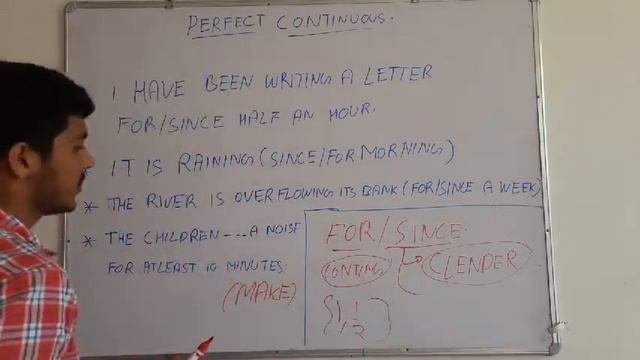 PERFECT CONTINUOUS.
I HAVE BEEN WRITING A LETTER
FOR/SINCE HALF AN HOUR.
* IT IS RAINING (SINCE/FOR MORNING)
* THE RIVER IS OVERFLOWING ITS BANK (FOR/SINCE A WEEK)
* THE CHILDREN --- A NOISE
FOR ATLEAST 10 MINUTES.
(MAKE)
FOR/SINCE.
CONTING
CLENDER
{1, 1/2}